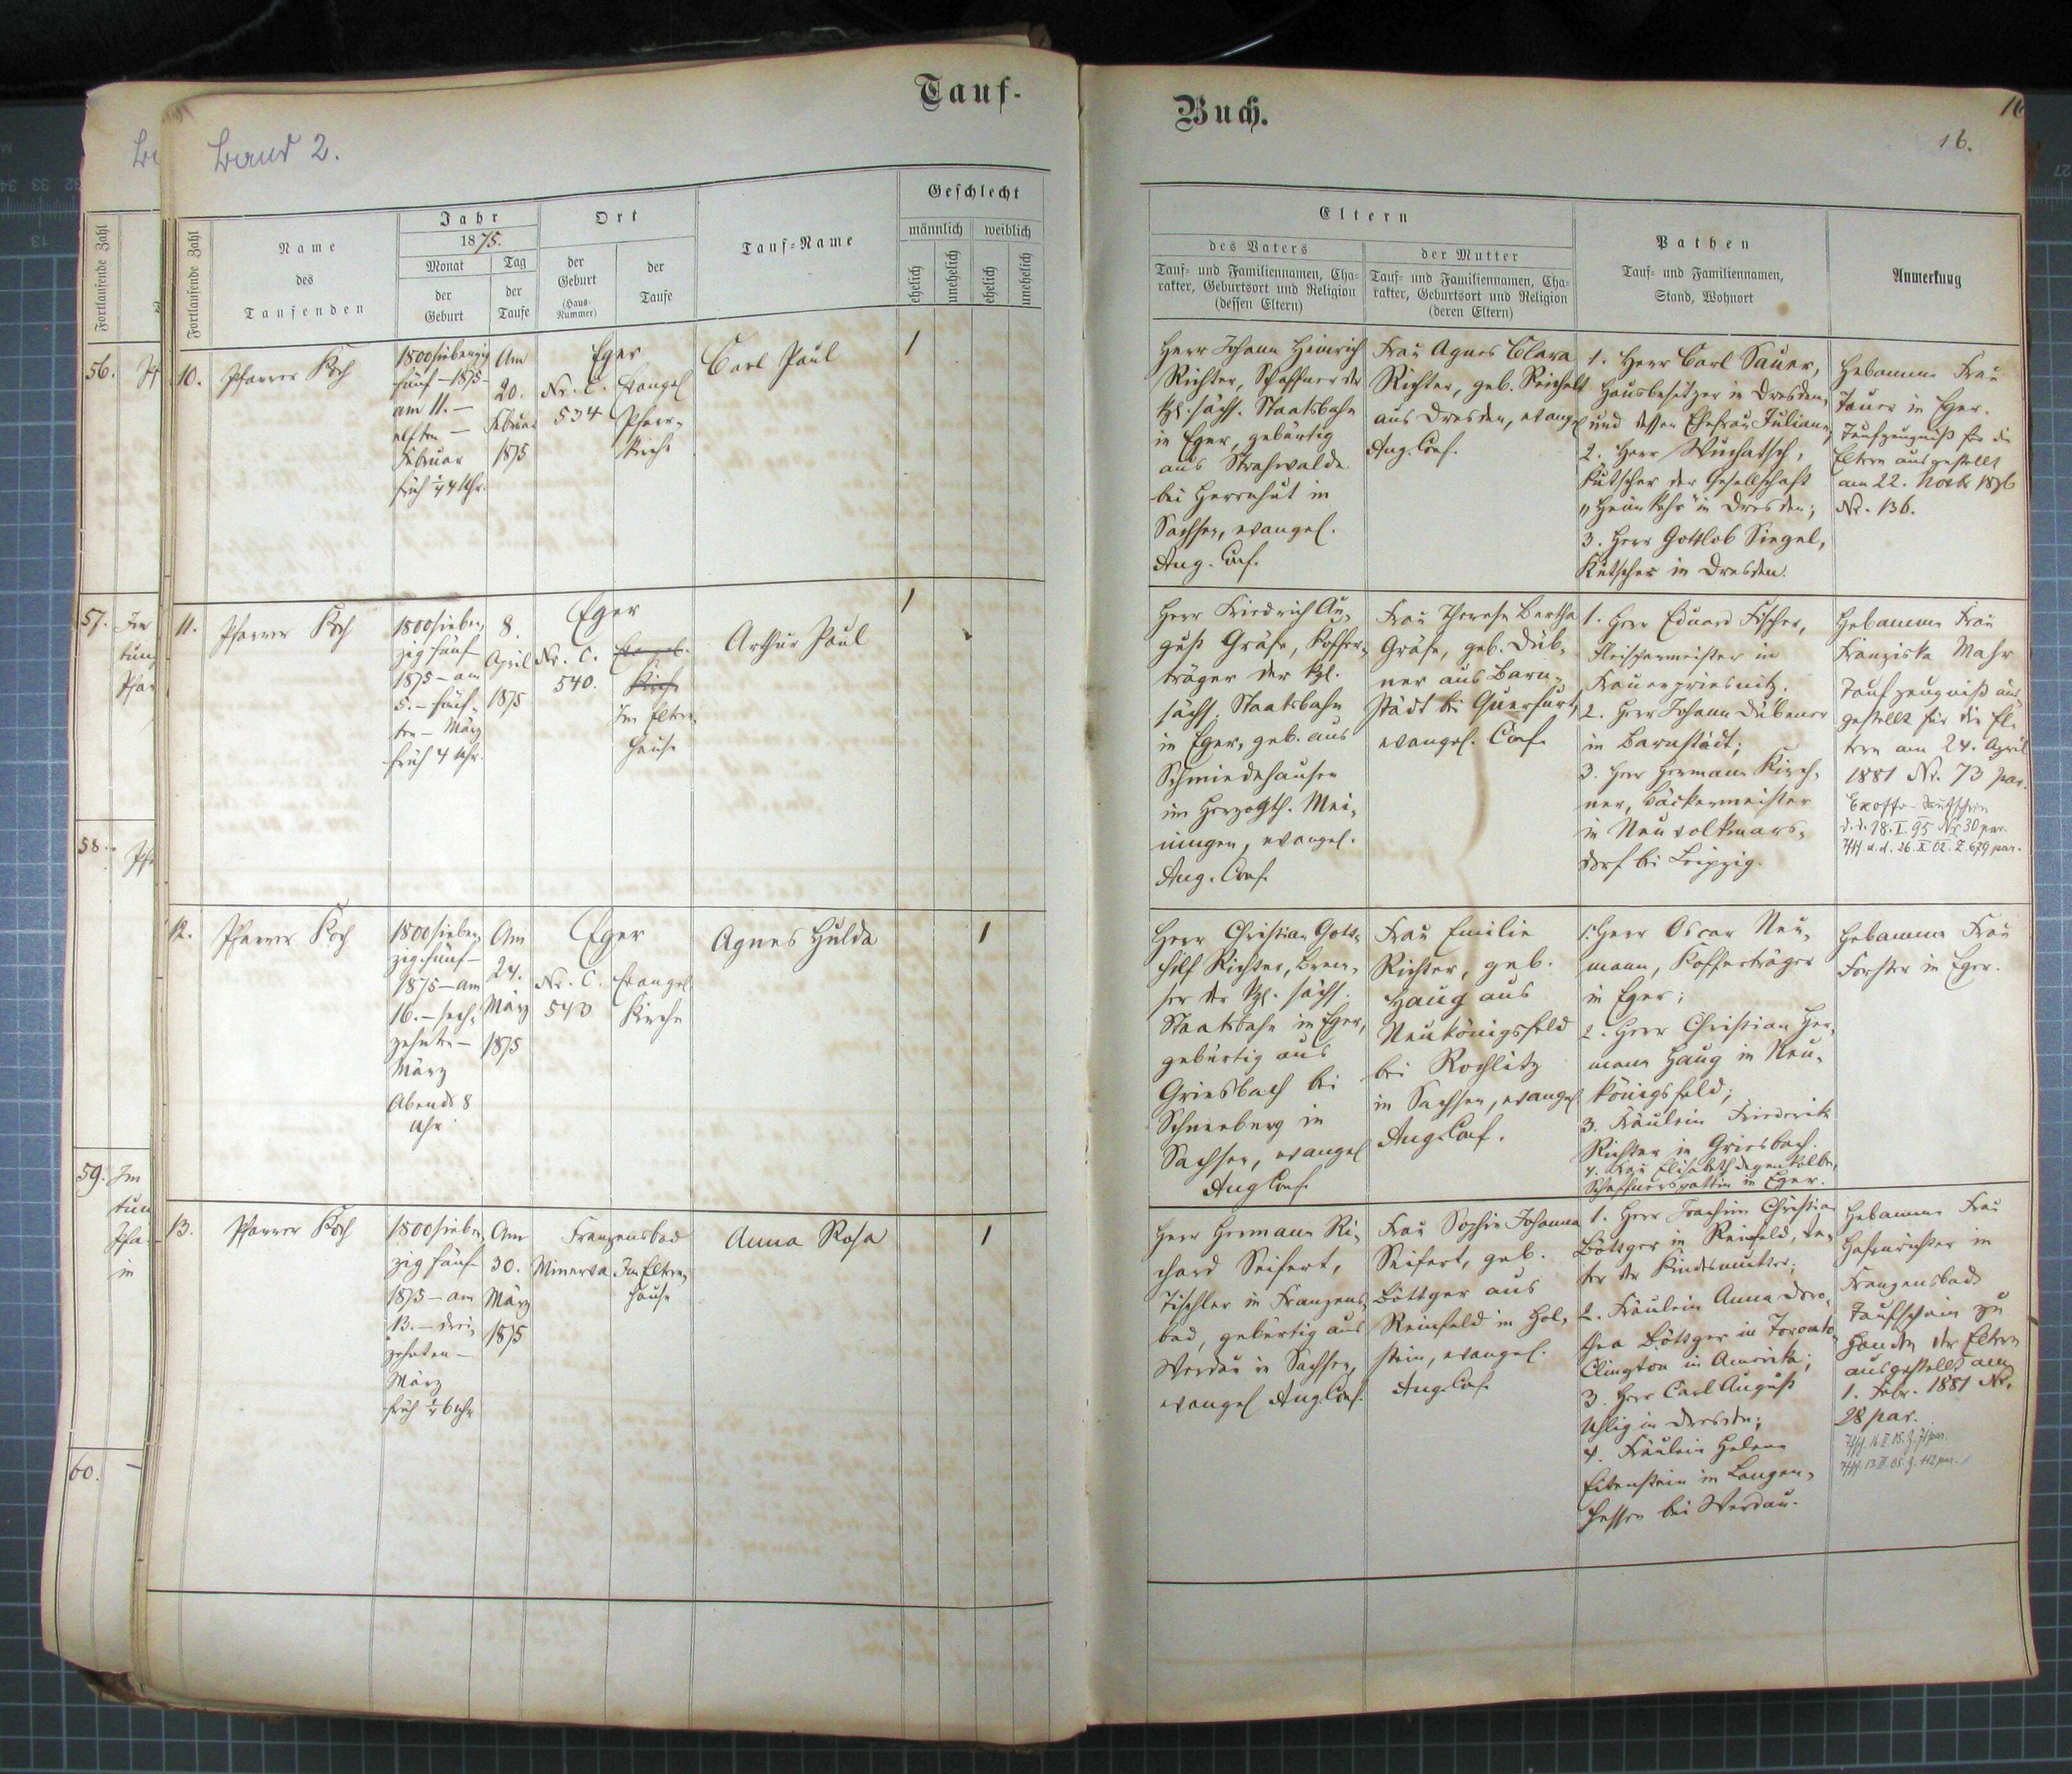 Tauf-
Buch.
16
16.
Band 2.
Fortlaufende Zahl
Fortlaufende Zahl
Name
des
Taufenden
Jahr
1875.
Monat
der
Geburt
Tag
der
Taufe
Ort
der
Geburt
(Haus-
Nummer)
der
Taufe
Tauf-Name
Geschlecht
männlich
weiblich
ehelich
unehelich
ehelich
unehelich
Eltern
des Vaters
Tauf- und Familiennamen, Cha-
rakter, Geburtsort und Religion
(dessen Eltern)
der Mutter
Tauf- und Familiennamen, Cha-
rakter, Geburtsort und Religion
(deren Eltern)
Pathen
Tauf- und Familiennamen,
Stand, Wohnort
Anmerkung
56.
57.
58.
59.
60.
10.
Pfarrer Koch
1800siebenzig
fünf – 1875 –
am 11. –
elften –
Februar
früh ¼4 Uhr.
Am
20.
Februar
1875
Eger
Nr. C.
534
Evangel
Pfarr-
kirche
Carl Paul
1
Herr Johann Heinrich
Richter, Schaffner der
kgl. sächs. Staatsbahn
in Eger, gebürtig
aus Strahwalde
bei Herrnhut in
Sachsen, evangel.
Aug. Conf.
Frau Agnes Clara
Richter, geb. Reichelt
aus Dresden, evangel
Aug. Conf.
1. Herr Carl Sauer,
Hausbesitzer in Dresden,
und dessen Ehefrau Juliane;
2. Herr Wuchatsch,
Kutscher der Gesellschaft
"Heimkehr" in Dresden;
3. Herr Gottlob Siegel,
Kutscher in Dresden.
Hebamme Frau
Tauer in Eger.
Taufzeugniß für die
Eltern ausgestellt
am 22. Novbr 1876
Nr. 136.
11.
Pfarrer Koch
1800sieben-
zig fünf
1875 – am
5. – fünf-
ten – März
früh 4 Uhr.
8.
April
1875
Eger
Nr. C.
540.
Evangel.
Kirche
Im Eltern-
hause
Arthur Paul
1
Herr Friedrich Au-
gust Gräfe, Koffer-
träger der kgl.
sächs. Staatsbahn
in Eger, geb. aus
Schmiedehausen
im Herzogth. Mei-
ningen, evangel.
Aug. Conf.
Frau Therese Bertha
Gräfe, geb. Düb-
ner aus Barn-
städt bei Querfurt,
evangel. Conf.
1. Herr Eduard Fischer,
Fleischermeister in
Frauenpriesnitz.
2. Herr Johann Dübener
in Barnstädt;
3. Herr Hermann Kirch-
ner, Bäckermeister
in Neuvolkmars-
dorf bei Leipzig.
Hebamme Frau
Franziska Mahr
Taufzeugniß aus-
gestellt für die El-
tern am 24. April
1881 Nr. 73 par.
Exoffo-Taufschein
d.d. 18. I. 95 Nr 30 par.
d.d. 26. X 02. Z 679 par.
12.
Pfarrer Koch
1800sieben-
zig fünf –
1875 – am
16. – sech-
zehnten –
März
Abends 8
Uhr
Am
24.
März
1875
Eger
Nr. C.
543
Evangel.
Kirche
Agnes Hulda
1
Herr Christian Gott-
hilf Richter, Brem-
ser der kgl. sächs.
Staatsbahn in Eger,
gebürtig aus
Griesbach bei
Schneeberg in
Sachsen, evangel
Aug Conf.
Frau Emilie
Richter, geb.
Haug aus
Neukönigsfeld
bei Rochlitz
in Sachsen, evangel
Aug. Conf.
1. Herr Oscar Neu-
mann, Kofferträger
in Eger;
2. Herr Christian Her-
mann Haug in Neu-
königsfeld;
3. Fräulein Friederike
Richter in Griesbach.
4. Frau Elisabeth Degenkolbe,
Schaffnersgattin in Eger.
Hebamme Frau
Forster in Eger.
13.
Pfarrer Koch
1800sieben-
zig fünf
1875 – am
13. – drei-
zehnten –
März
früh ¼6 Uhr
Am
30.
März
1875
Franzensbad
Minerva
Im Eltern-
hause
Anna Rosa
1
Herr Hermann Ri-
chard Seifert,
Tischler in Franzens-
bad, gebürtig aus
Werdau in Sachsen,
evangel Aug. Conf.
Frau Sophie Johanna
Seifert, geb.
Böttger aus
Reinfeld in Hol-
stein, evangel.
Aug. Conf.
1. Herr Joachim Christian
Böttger in Reinfeld, Va-
ter der Kindesmutter;
2. Fräulein Anna Doro-
thea Böttger in Toronto
Clington in Amerika;
3. Herr Carl August
Uhlig in Dresden;
4. Fräulein Helene
Eibenstein in Langen-
hessen bei Werdau.
Hebamme Frau
Hafenrichter in
Franzensbad
Taufschein zu
Handen der Eltern
ausgestellt am
1. Febr. 1881 Nr.
28 par.